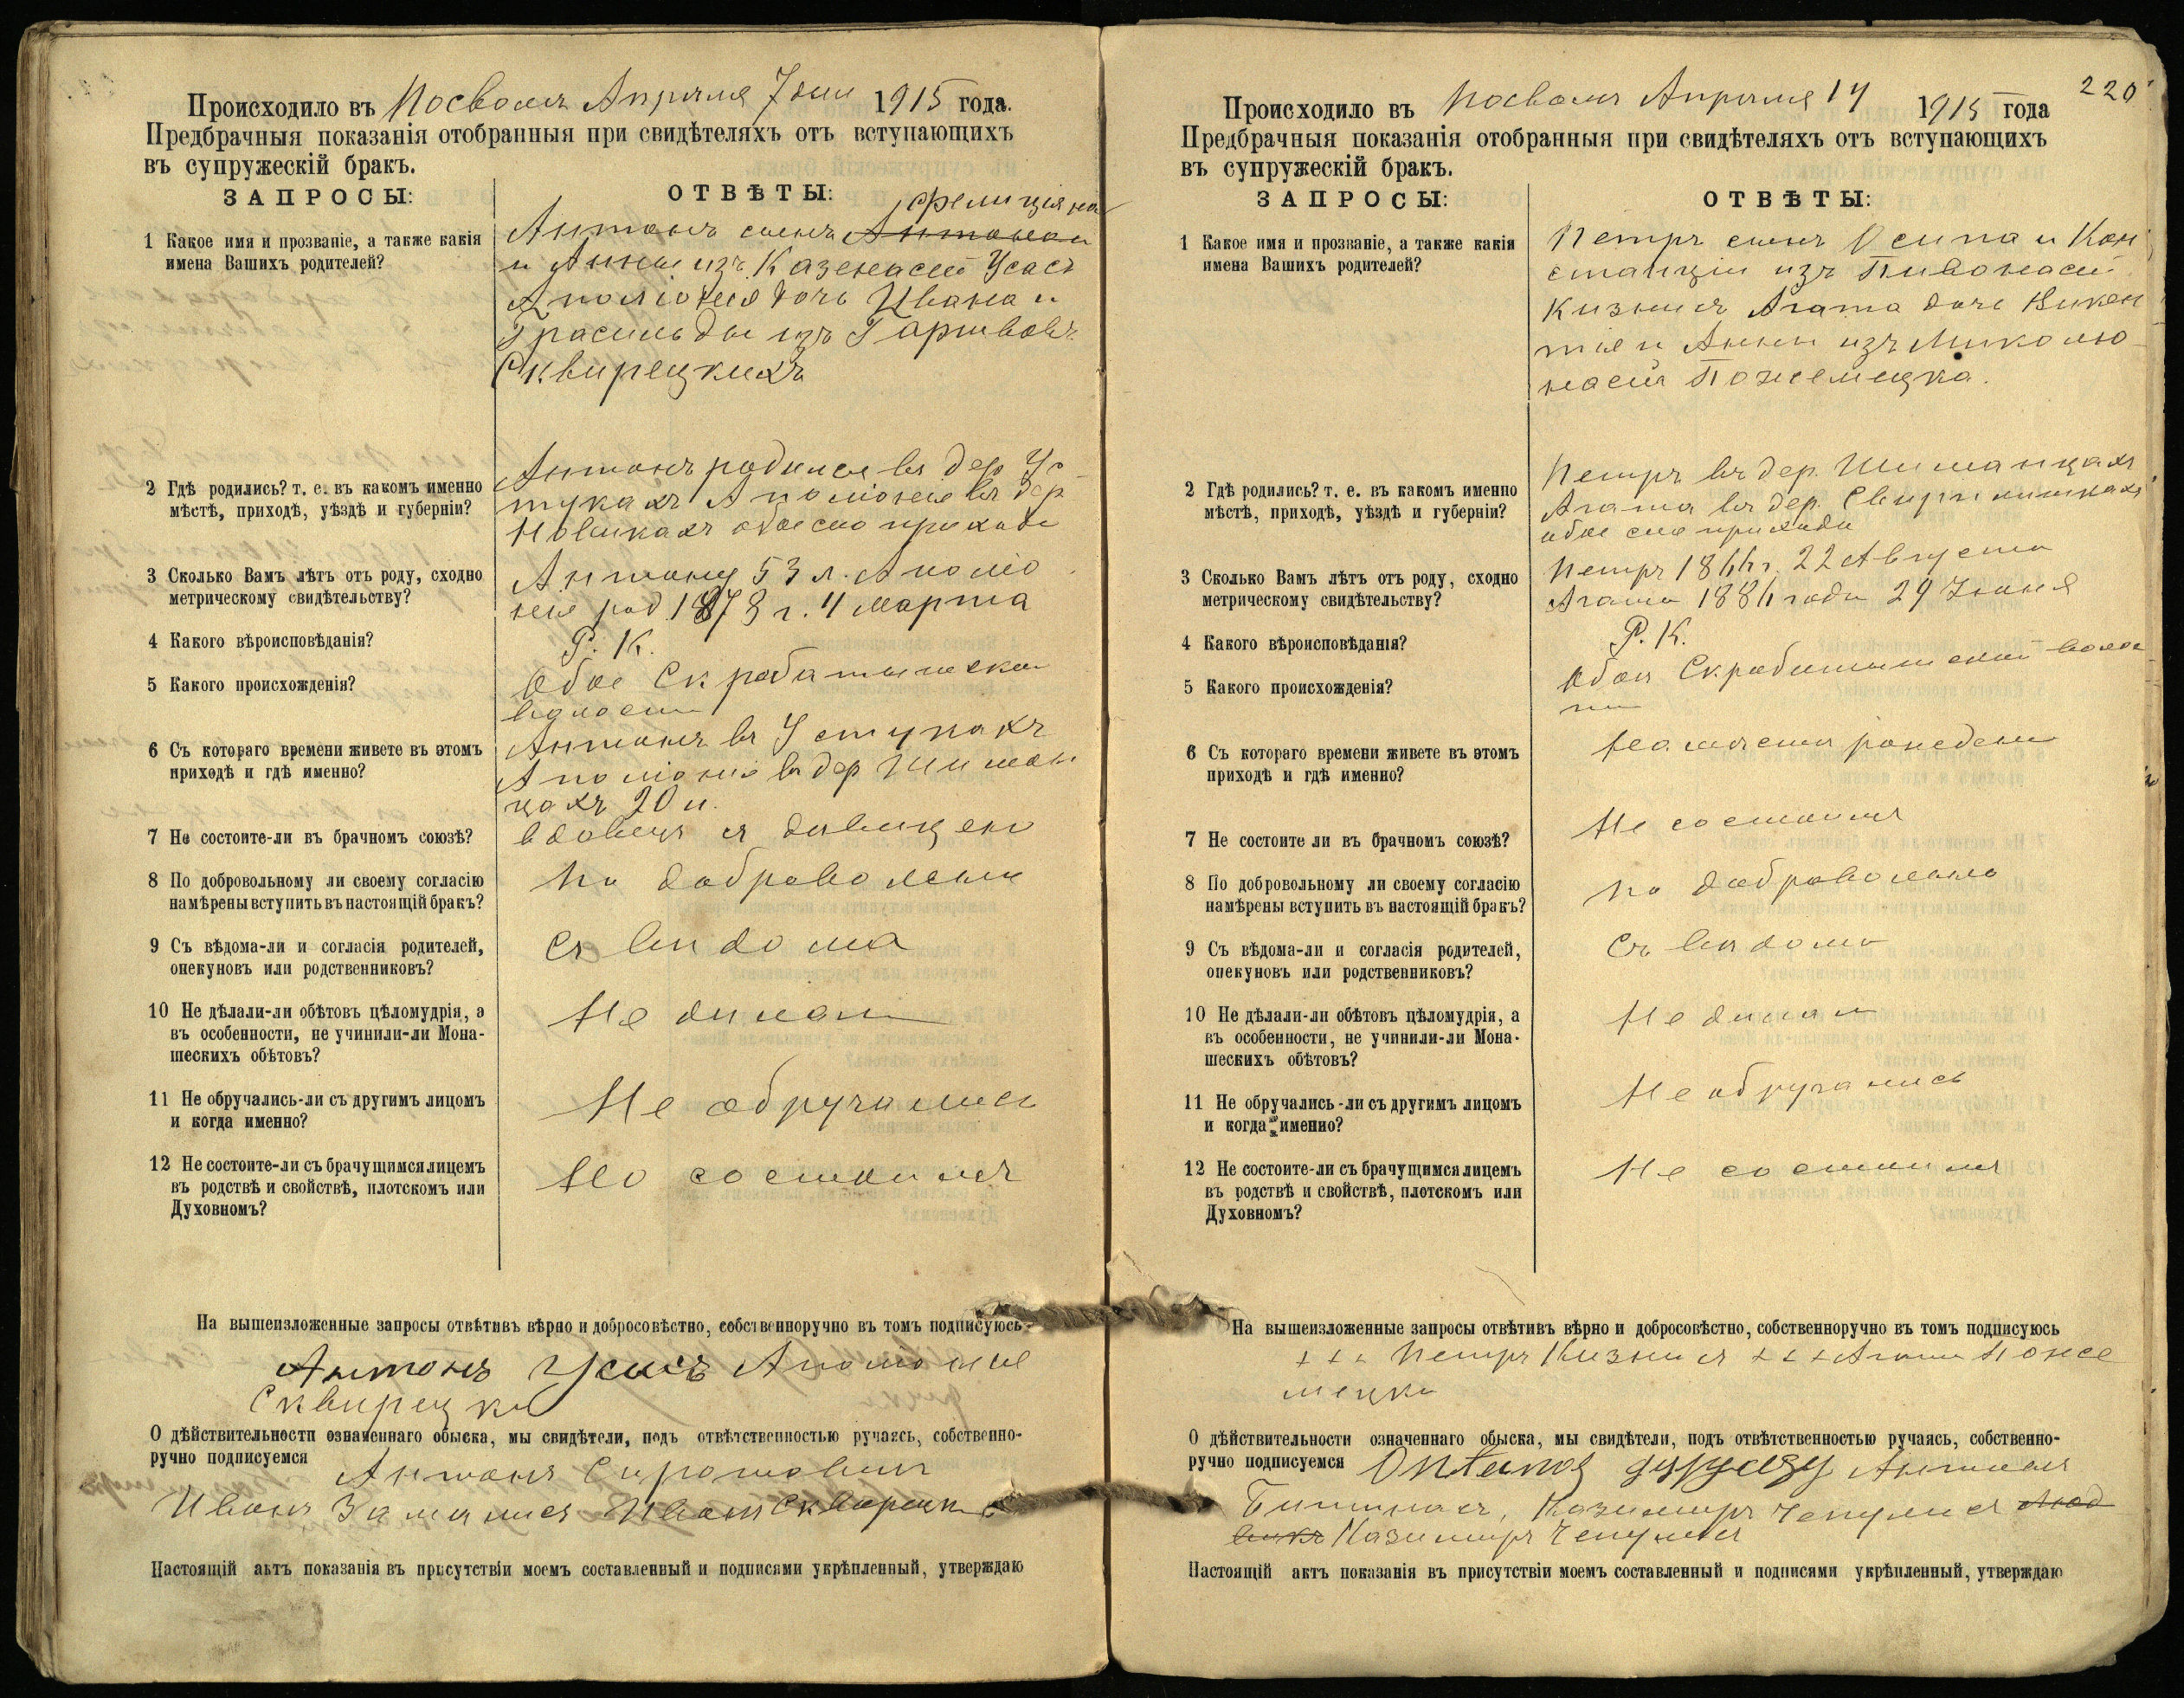 Происходило въ Посволѣ Апрѣля 7 дня 1915 года.
Предбрачныя показанія отобранныя при свидѣтеляхъ отъ вступающихъ
въ супружескій бракъ.
ЗАПРОСЫ:
ОТВѢТЫ:
1 Какое имя и прозваніе, а также какія
имена Вашихъ родителей?
Фелиціяна
Антонъ сынъ Антона
и Анны изъ Казенасей Усасъ
Аполіонія дочь Ивана и
Грасильды изъ
Сквирецкихъ
2 Гдѣ родились? т. е. въ какомъ именно
мѣстѣ, приходѣ, уѣздѣ и губерніи?
Антонъ родился въ дер Ус
тукахъ Аполіонія въ дер
Новикахъ обое сего прихода
3 Сколько Вамъ лѣтъ отъ роду, сходно
метрическому свидѣтельству?
Антону 53 л. Аполіо
нія род 1878 г. 4 Марта
4 Какого вѣроисповѣданія?
Р. К.
5 Какого происхожденія?
Обое Скробатышской
волости
6 Съ котораго времени живете въ этомъ
приходѣ и гдѣ именно?
Антонъ въ Устукахъ
Аполіонія въ дер Шиман
цахъ 20 л.
7 Не состоите-ли въ брачномъ союзѣ?
вдовецъ съ дѣвицею
8 По добровольному ли своему согласію
намѣрены вступить въ настоящій бракъ?
По добровольном
9 Съ вѣдома-ли и согласія родителей,
опекуновъ или родственниковъ?
Съ вѣдома
10 Не дѣлали-ли обѣтовъ цѣломудрія, а
въ особенности, не учинили-ли Мона-
шескихъ обѣтовъ?
Не дѣлали
11 Не обручались-ли съ другимъ лицомъ
и когда именно?
Не обручались
12 Не состоите-ли съ брачущимся лицемъ
въ родствѣ и свойствѣ, плотскомъ или
Духовномъ?
Не состоимъ
На вышеизложенные запросы отвѣтивъ вѣрно и добросовѣстно, собственноручно въ томъ подписуюсь
Антонъ Усасъ Аполіонія
Сквирецка
О дѣйствительности означеннаго обыска, мы свидѣтели, подъ отвѣтственностью ручаясь, собственно-
ручно подписуемся
Антонъ Сиротовичъ
Иванъ Иванъ Сквирецки
Настоящій актъ показанія въ присутствіи моемъ составленный и подписями укрѣпленный, утверждаю
220
Происходило въ Посволѣ Апрѣля 14 1915 года
Предбрачныя показанія отобранныя при свидѣтеляхъ отъ вступающихъ
въ супружескій бракъ.
ЗАПРОСЫ:
ОТВѢТЫ:
1 Какое имя и прозваніе, а также какія
имена Вашихъ родителей?
Петръ сынъ Осипа и Кон
станціи изъ Пивонасей
Кизнисъ Агата дочь Викен
тія и Анны изъ Миколю
насей Пожемецка.
2 Гдѣ родились? т. е. въ какомъ именно
мѣстѣ, приходѣ, уѣздѣ и губерніи?
Петръ въ дер. Шиманцахъ
Агата въ дер.
обое сего прихода
3 Сколько Вамъ лѣтъ отъ роду, сходно
метрическому свидѣтельству?
Петръ 22 Августа
Агата года 29 Іюня
4 Какого вѣроисповѣданія?
Р. К.
5 Какого происхожденія?
Обои Скробатышской волос
ти
6 Съ котораго времени живете въ этомъ
приходѣ и гдѣ именно?
На мѣстѣ рожденія
7 Не состоите ли въ брачномъ союзѣ?
Не состоимъ
8 По добровольному ли своему согласію
намѣрены вступить въ настоящій бракъ?
По добровольно
9 Съ вѣдома-ли и согласія родителей,
опекуновъ или родственниковъ?
Съ вѣдома
10 Не дѣлали-ли обѣтовъ цѣломудрія, а
въ особенности, не учинили-ли Мона-
шескихъ обѣтовъ?
Не дѣлали
11 Не обручались-ли съ другимъ лицомъ
и когда именно?
Не обручались
12 Не состоите-ли съ брачущимся лицемъ
въ родствѣ и свойствѣ, плотскомъ или
Духовномъ?
Не состоимъ
На вышеизложенные запросы отвѣтивъ вѣрно и добросовѣстно, собственноручно въ томъ подписуюсь
+ + + Петръ Кизнисъ + + + Агата Поже
мецка
О дѣйствительности означеннаго обыска, мы свидѣтели, подъ отвѣтственностью ручаясь, собственно-
ручно подписуемся
Антонъ
Казимиръ Чепулисъ
Казимиръ Чепулисъ
Настоящій актъ показанія въ присутствіи моемъ составленный и подписями укрѣпленный, утверждаю